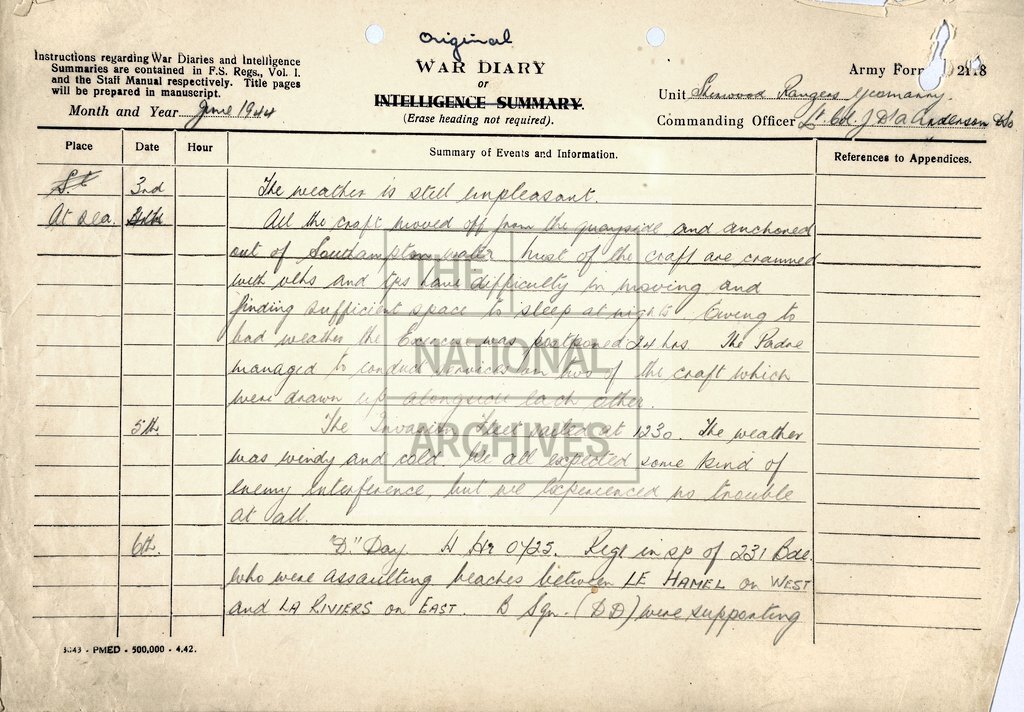 Original
Instructions regarding War Diaries and Intelligence
Summaries are contained in F.S. Regs., Vol. I.
and the Staff Manual respectively. Title pages
will be prepared in manuscript.
Month and Year June 1944
WAR DIARY
or
INTELLIGENCE SUMMARY.
(Erase heading not required).
Army Form 2118
Unit Sherwood Rangers Yeomanry.
Commanding Officer Lt. Col. J D'A Anderson DSO
Place Date Hour Summary of Events and Information. References to Appendices.
St 3rd The weather is still unpleasant.
At sea. All the craft moved off from the quayside and anchored
out of Southampton water Most of the craft are crammed
with vehs and tps have difficulty in moving and
finding sufficient space to sleep at nights. Owing to
bad weather the Exercise was postponed 24 hrs. The Padre
managed to conduct services in two of the craft which
were drawn up alongside each other.
5th. The Invasion Fleet sailed at 1230. The weather
was windy and cold. We all expected some kind of
enemy interference, but we experienced no trouble
at all.
6th. "D" Day. H Hr 0725. Regt in sp of 231 Bde.
who were assaulting beaches between LE HAMEL on WEST
and LA RIVIERS on EAST. B Sqn. (DD) were supporting
3643 - PMED - 500,000 - 4.42.
THE
NATIONAL
ARCHIVES